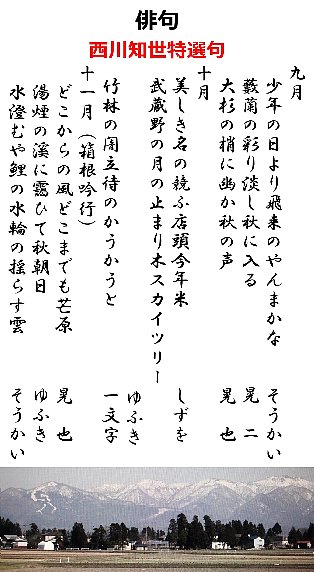 俳句
西川知世特選句
九月
少年の日より飛来のやんまかな そうかい
藪蘭の彩り淡し秋に入る 晃二
大杉の梢に幽か秋の声 晃也
十月
美しき名の競ふ店頭今年米 しずを
武蔵野の月の止まり木スカイツリー ゆふき
竹林の闇立待のかうかうと 一文字
十一月(箱根吟行)
どこからの風どこまでも芒原 晃也
湯煙の渓に靄ひて秋朝日 ゆふき
水澄むや鯉の水輪の揺らす雲 そうかい